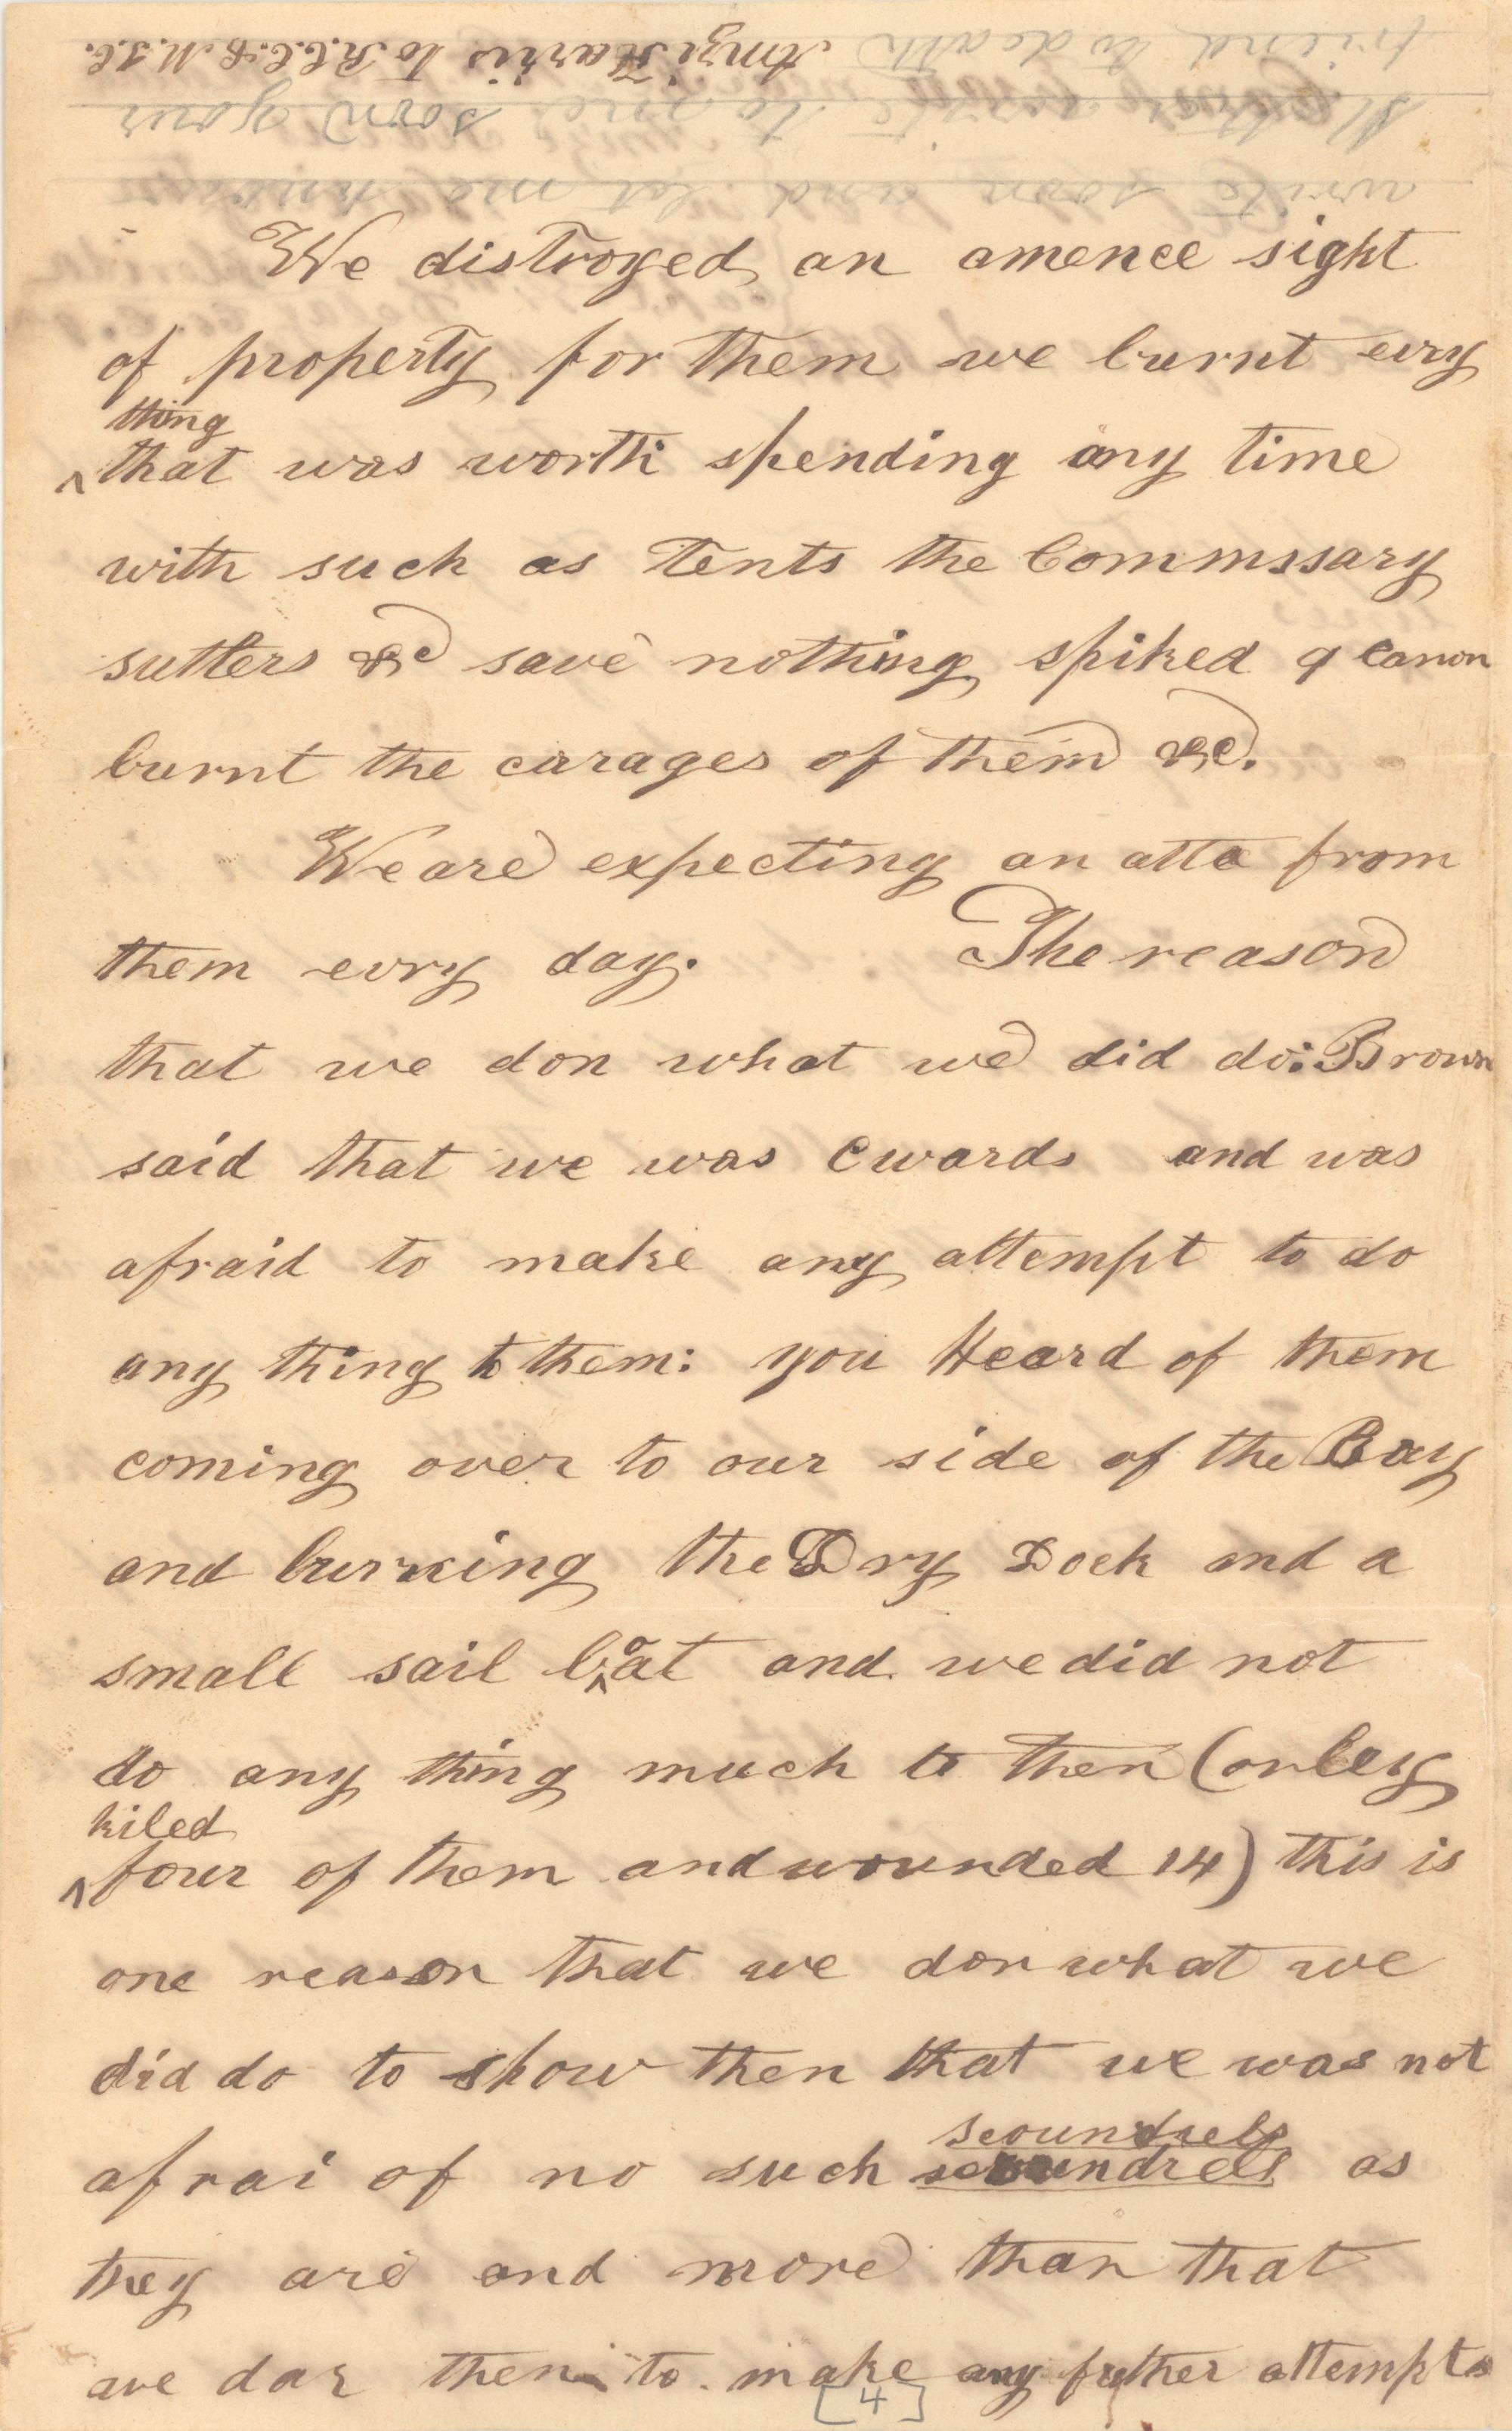 friend to death Amzi Harris to R.C.C. & M.J.C.
Mother write to me soon your
write soon and let me know
We distroyed an amence sight
of property for them we burnt evry
thing
^that was worth spending any time
with such as Tents the Commssary
sutlers &c save nothing spiked 9 canon
burnt the carages of them &c.
We are expecting an atta from
them evry day. The reason
that we don what we did do: Brown
said that we was cwards and was
afraid to make any attempt to do
any thing to them: you Heard of them
coming over to our side of the Bay
and burning the Dry Dock and a
small sail b^oat and we did not
do any thing much to then (onley
kiled
^four of them and wounded 14) this is
one reason that we don what we
did do to show then that we was not
scoundrels
afrai of no such scoundrels as
they are and more than that
we dar then to make any futher attempts
[4]